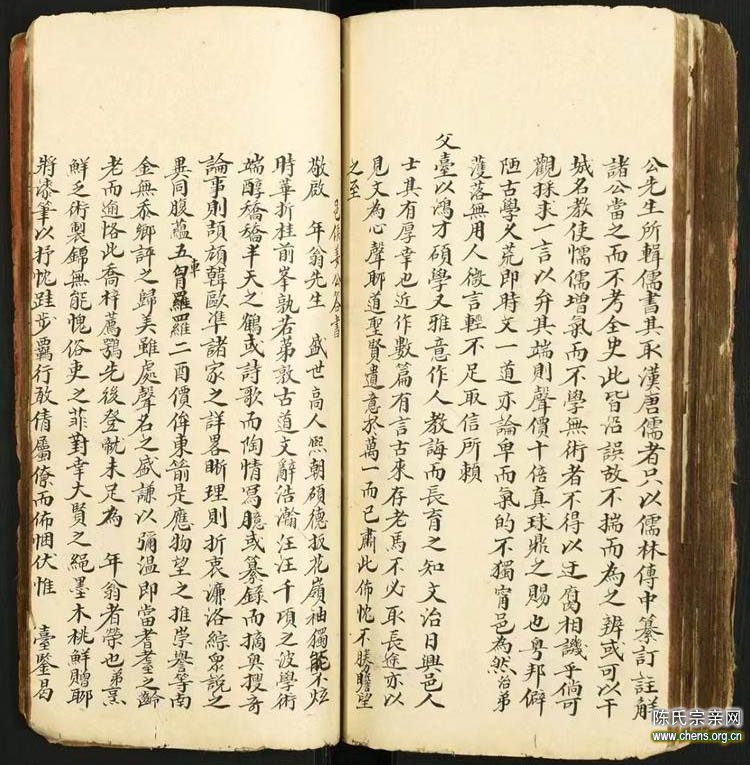 公先生所輯儒書其取漢唐儒者只以儒林傳中纂訂註解
諸公當之而不考全史此皆沿誤故不揣而為之辨或可以干
城名教使懦儒增氣而不學無術者不得以迂腐相譏乎倘可
觀採求一言以弁其端則聲價十倍真球鼎之賜也粵邦僻
陋古學久荒即時文一道亦論卑而氣的不獨甯邑為然治弟
濩落無用人微言輕不足取信所賴
父臺以鴻才碩學又雅意作人教誨而長育之知文治日興邑人
士其有厚幸也近作數篇有言古來存老馬不必取長途亦以
見文為心聲聊道聖賢遺意於萬一而已肅此佈忱不勝瞻望
之至
邑侯 公答書
敬啟 年翁先生 盛世高人熙朝碩德扳花嶺袖獨能不炫
時華折桂前峯孰若弟敦古道文辭浩瀚汪汪千頃之波學術
端醇矯矯半天之鶴或詩歌而陶情寫臆或纂錄而摘奧搜奇
論事則頡頏韓歐準諸家之詳畧晰理則折衷濂洛綜眾說之
異同腹蘊五車胷羅二酉價侔東箭是應物望之推崇譽等南
金無忝鄉評之歸美雖處聲名之盛謙以彌温即當耆耋之齡
老而逾恪此喬梓薦鶚先後登龍未足為 年翁者榮也弟烹
鮮乏術製錦無能愧俗吏之菲對幸大賢之繩墨木桃鮮贈聊
將漆筆以抒忱跬步羈行敢倩屬僚而佈悃伏惟 臺鑒曷
陈氏宗亲网
www.chens.org.cn